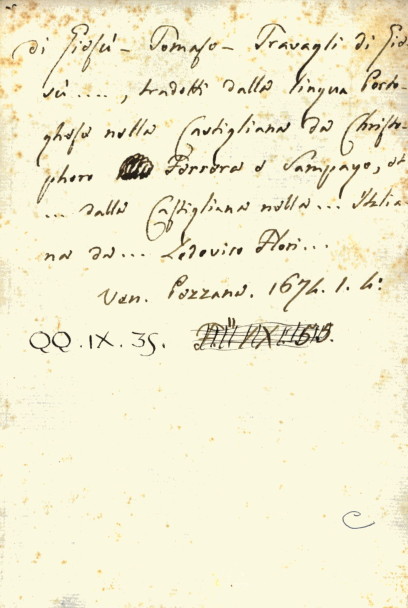 di Giesù - Tomaso - Travagli di Gie
sù ...., tradotti dalla lingua Porto-
ghese nella Castigliana da Christo-
phoro Ferrera e Sampayo, et
... dalla Castigliana nella ... Italia-
na da ... Lodovico Flori ...
Ven. Pezzana. 1674. 1. 4:
QQ.IX.35.
C